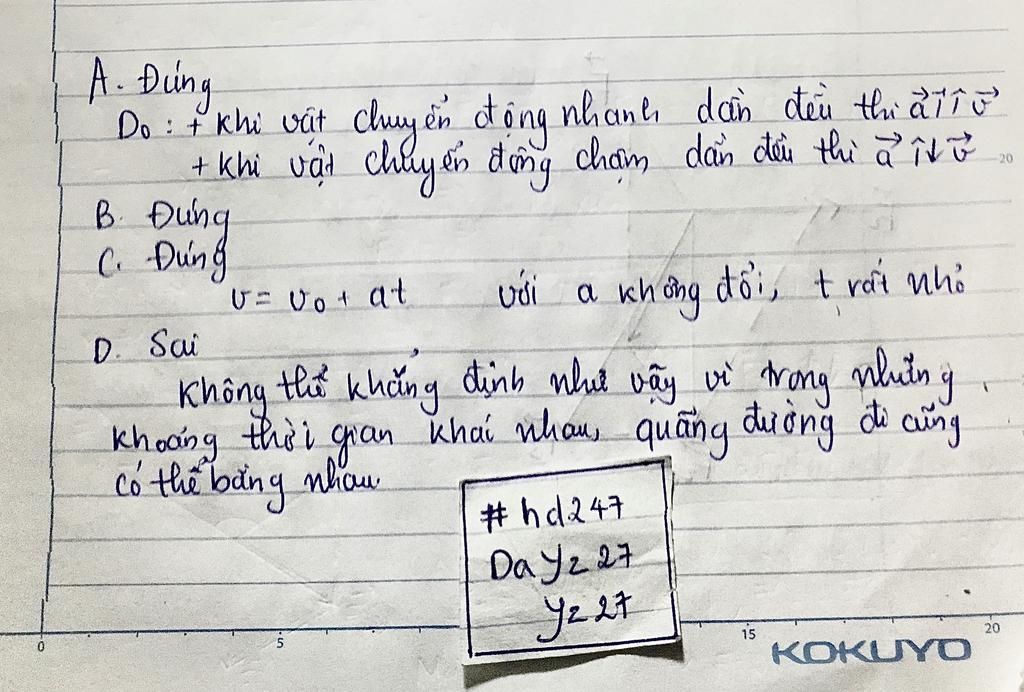 A. Đúng
Do : + khi vật chuyển động nhanh dần đều thì a⃗ ↑↑ v⃗
+ khi vật chuyển động chậm dần đều thì a⃗ ↑↓ v⃗
B. Đúng
C. Đúng
v = v₀ + at với a không đổi, t rất nhỏ
D. Sai
Không thể khẳng định như vậy vì trong những
khoảng thời gian khái nhau, quãng đường đi cũng
có thể bằng nhau.
#hd247
Dayz27
yz27
0 5 15 20
20
KOKUYO